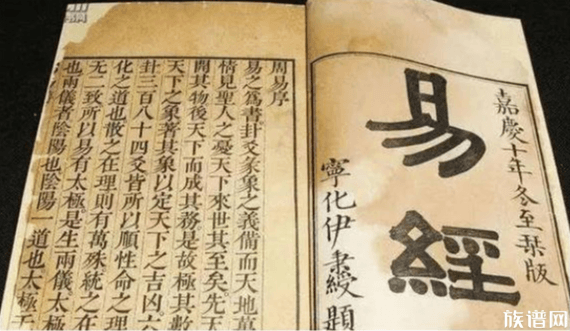 嘉慶十年冬至栞版
易經
寧化伊秉綬題
周易序
易之爲書卦爻彖象之義備而天地萬
情見聖人之憂天下來世其至矣先天
開其物後天下而成其務是故極其數
天下之象著其象以定天下之吉凶六
卦三百八十四爻皆所以順性命之理
化之道也散之在理則有萬殊統之在
无二致所以易有太極是生兩儀太極
也兩儀者陰陽也陰陽一道也太極无
族谱网